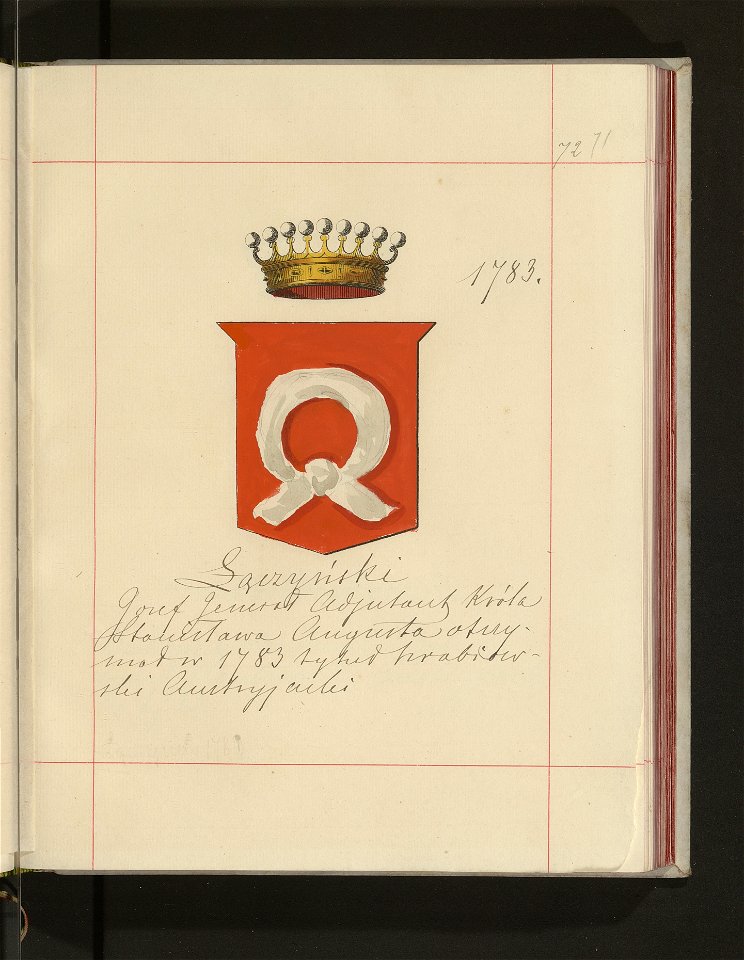 72 71
1783.
Łączyński
Josef Jenerał Adjutant Króla
Stanisława Augusta otrzy-
mał w 1783 tytuł hrabiow-
ski Austryjacki